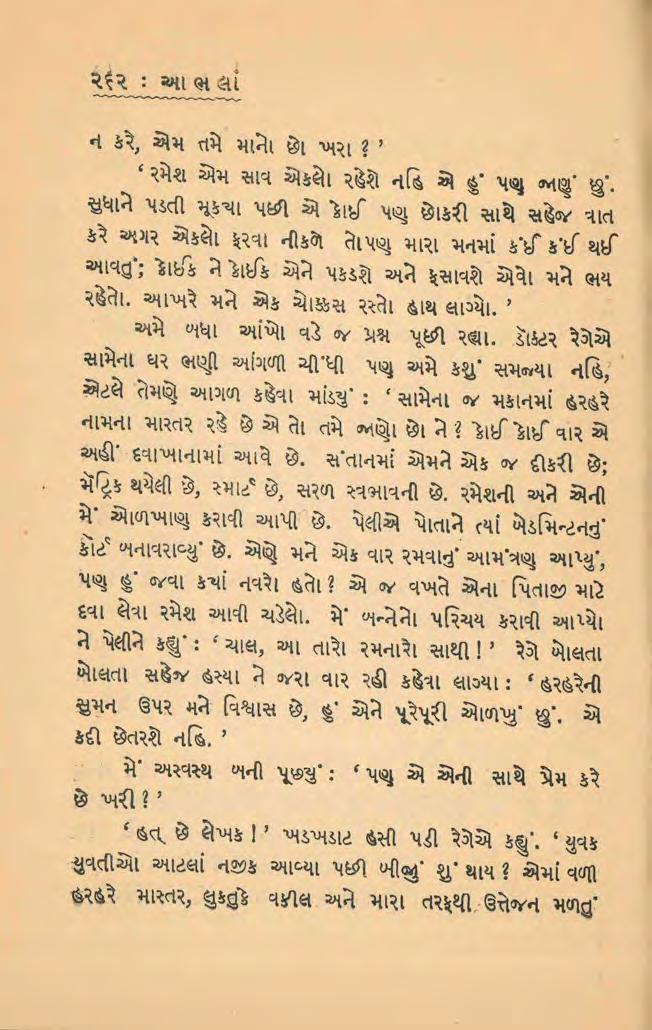 ૨૬૨ : આભલાં
ન કરે, એમ તમે માનો છો ખરા ? ’
‘ રમેશ એમ સાવ એકલો રહેશે નહિ એ હું પણ જાણું છું.
સુધાને પડતી મૂકયા પછી એ કોઈ પણ છોકરી સાથે સહેજ વાત
કરે અગર એકલો ફરવા નીકળે તોપણ મારા મનમાં કંઈ કંઈ થઈ
આવતું; કોઈક ને કોઈક એને પકડશે અને ફસાવશે એવો મને ભય
રહેતો. આખરે મને એક ચોક્કસ રસ્તો હાથ લાગ્યો. ’
અમે બધા આંખો વડે જ પ્રશ્ન પૂછી રહ્યા. ડૉક્ટર રેગેએ
સામેના ઘર ભણી આંગળી ચીંધી પણ અમે કશું સમજ્યા નહિ,
એટલે તેમણે આગળ કહેવા માંડયું : ‘ સામેના જ મકાનમાં હરહરે
નામના માસ્તર રહે છે એ તો તમે જાણો છો ને ? કોઈ કોઈ વાર એ
અહીં દવાખાનામાં આવે છે. સંતાનમાં એમને એક જ દીકરી છે;
મૅટ્રિક થયેલી છે, સ્માર્ટ છે, સરળ સ્વભાવની છે. રમેશની અને એની
મેં ઓળખાણ કરાવી આપી છે. પેલીએ પોતાને ત્યાં બેડમિન્ટનનું
કૉર્ટ બનાવરાવ્યું છે. એણે મને એક વાર રમવાનું આમંત્રણ આપ્યું,
પણ હું જવા કયાં નવરો હતો ? એ જ વખતે એના પિતાજી માટે
દવા લેવા રમેશ આવી ચડેલો. મેં બન્નેનો પરિચય કરાવી આપ્યો
ને પેલીને કહ્યું : ‘ ચાલ, આ તારો રમનારો સાથી ! ’ રેગે બોલતા
બોલતા સહેજ હસ્યા ને જરા વાર રહી કહેવા લાગ્યા : ‘ હરહરેની
સુમન ઉપર મને વિશ્વાસ છે, હું એને પૂરેપૂરી ઓળખું છું. એ
કદી છેતરશે નહિ. ’
મેં અસ્વસ્થ બની પૂછયું : ‘ પણ એ એની સાથે પ્રેમ કરે
છે ખરી ? ’
‘ હત્ છે લેખક ! ’ ખડખડાટ હસી પડી રેગેએ કહ્યું. ‘ યુવક
યુવતીઓ આટલાં નજીક આવ્યા પછી બીજું શું થાય ? એમાં વળી
હરહરે માસ્તર, લુકતુકે વકીલ અને મારા તરફથી ઉત્તેજન મળતું